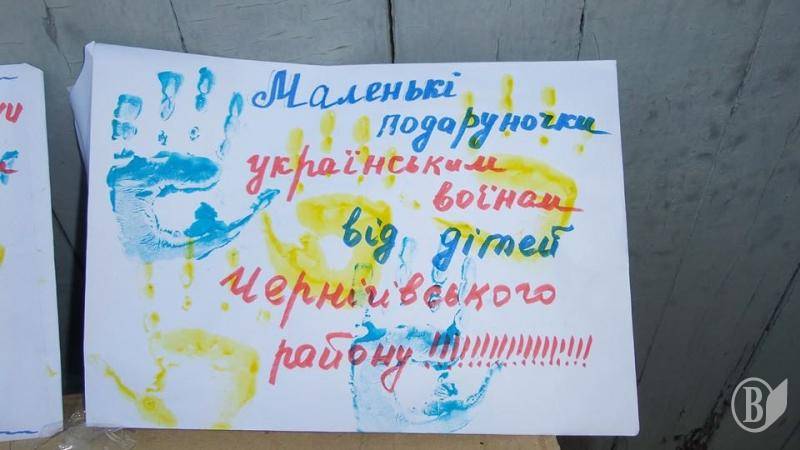 Маленькі
подаруночки
українським
воїнам
від дітей
Чернігівського
району !!!!!!!!!!!!!!!!!!
В